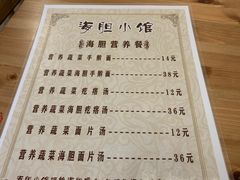 海胆小馆
海胆营养餐
营养蔬菜手擀面 14元
营养蔬菜海胆手擀面 38元
营养蔬菜疙瘩汤 12元
营养蔬菜海胆疙瘩汤 36元
营养蔬菜面片汤 12元
营养蔬菜海胆面片汤 36元